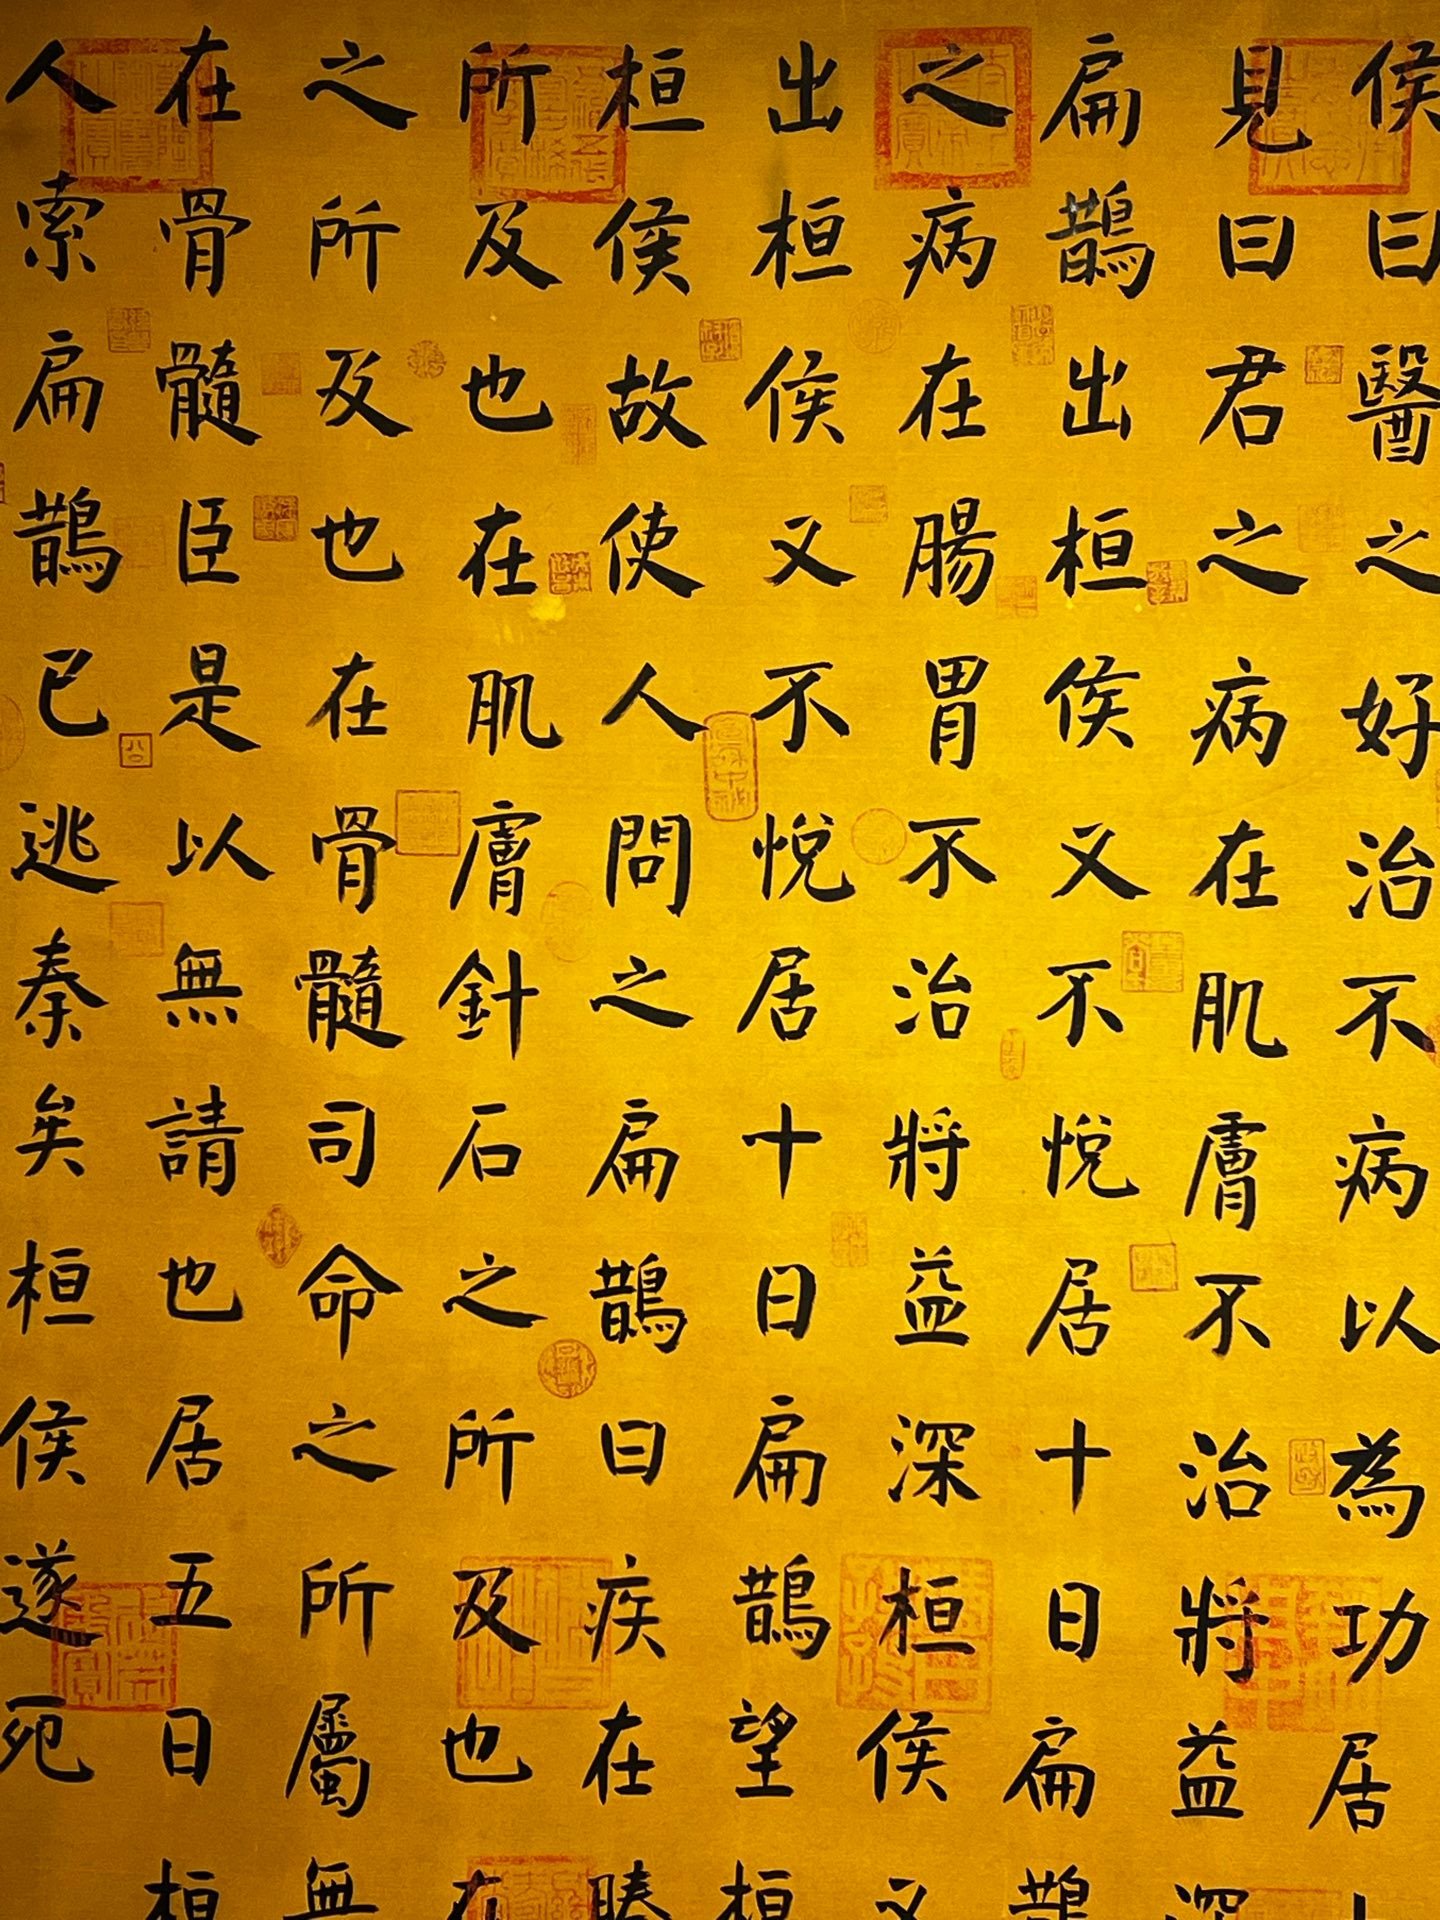 侯曰醫之好治不病以為功居十
見曰君之病在肌膚不治將益深
扁鵲出桓侯又不悅居十日扁鵲
之病在腸胃不治將益深桓侯又
出桓侯又不悅居十日扁鵲望桓
桓侯故使人問之扁鵲曰疾在腠
所及也在肌膚針石之所及也在
之所及也在骨髓司命之所屬無
在骨髓臣是以無請也居五日桓
人索扁鵲已逃秦矣桓侯遂死